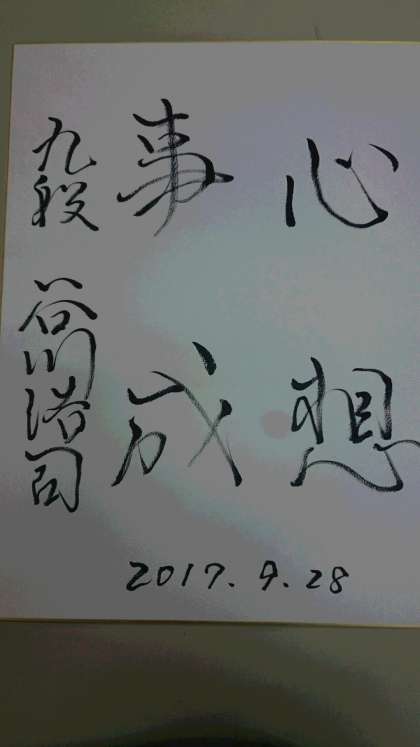 心想
事成
九段 谷川浩司
2017.9.28